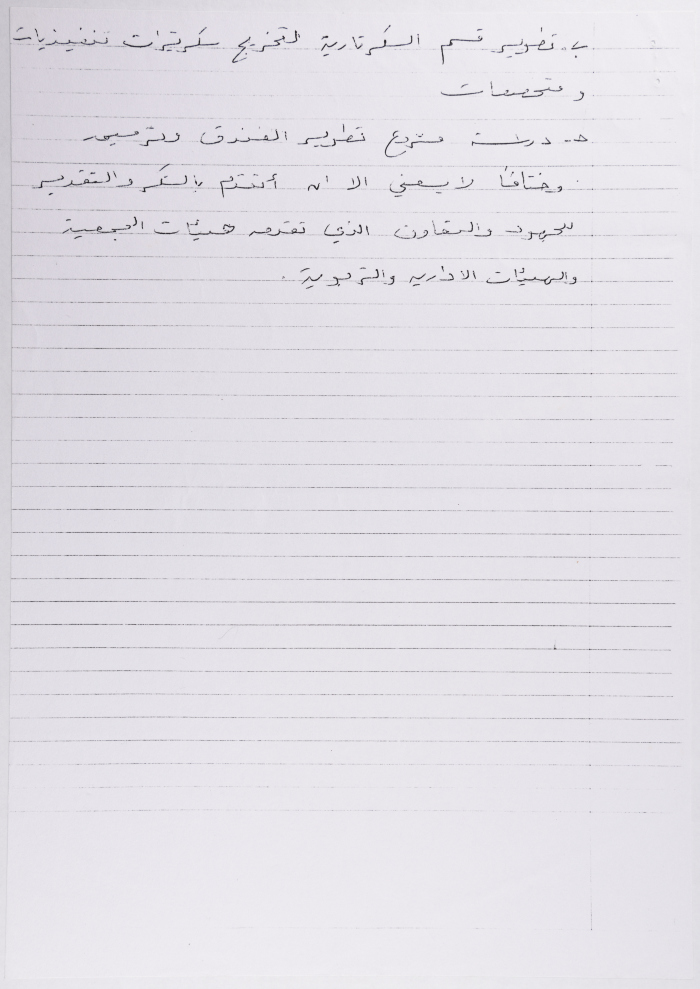 ب- تطوير قسم السكرتارية لتخريج سكرتيرات تنفيذيات
ومتخصصات
حـ- دراسة مشروع تطوير الفندق وترميمه
وختاماً لا يسعني الا ان أتقدم بالشكر والتقدير
للجهود والتعاون الذي تقدمه هيئات الجمعية
والهيئات الادارية والتربوية.